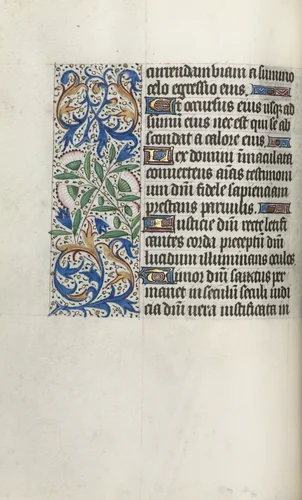 currendam viam a summo
celo egressio eius.
Et occursus eius usq; ad
summum eius nec est qui se ab
scondat a calore eius.
Lex domini immaculata
convertens aīas testimoni
um dm̄ fidele sapienciam
prestans parvulis.
Iusticie dm̄ recte letifi
cantes corda preceptū dm̄
lucidum illuminans oculos
Timor dm̄ sanctus per
manet in seculū seculi iudi
cia dm̄ vera iustificata in